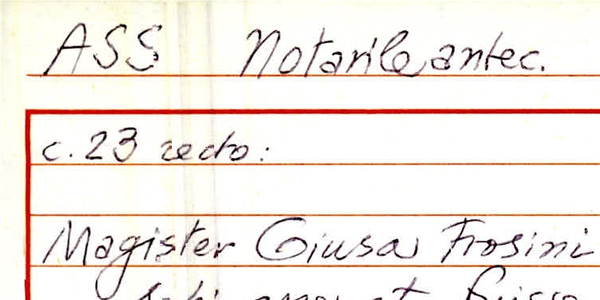 ASS Notarile antec.
c. 23 recto:
Magister Giusa Frosini
et